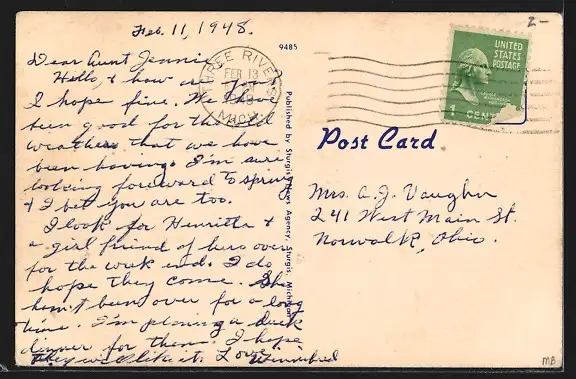 Feb. 11, 1948.
Dear Aunt Jennie
Hello, & how are you?
I hope fine. We have
been good for the
weather that we have
been having. I'm sure
looking foreward to spring
& I bet you are too.
I look for Henrietta &
a girl friend of hers over
for the week end. I do
hope they come. She
hasn't been over for a long
time. I'm planing a duck
dinner for them. I hope
they will like it. Love
Winnifred
9485
Published by Sturgis News Agency, Sturgis, Michigan
THREE RIVERS
FEB 13
1948
MICH.
UNITED
STATES
POSTAGE
1 CENT
2-
Post Card
Mrs. A. J. Vaughn
241 West Main St.
Norwalk, Ohio.
MB